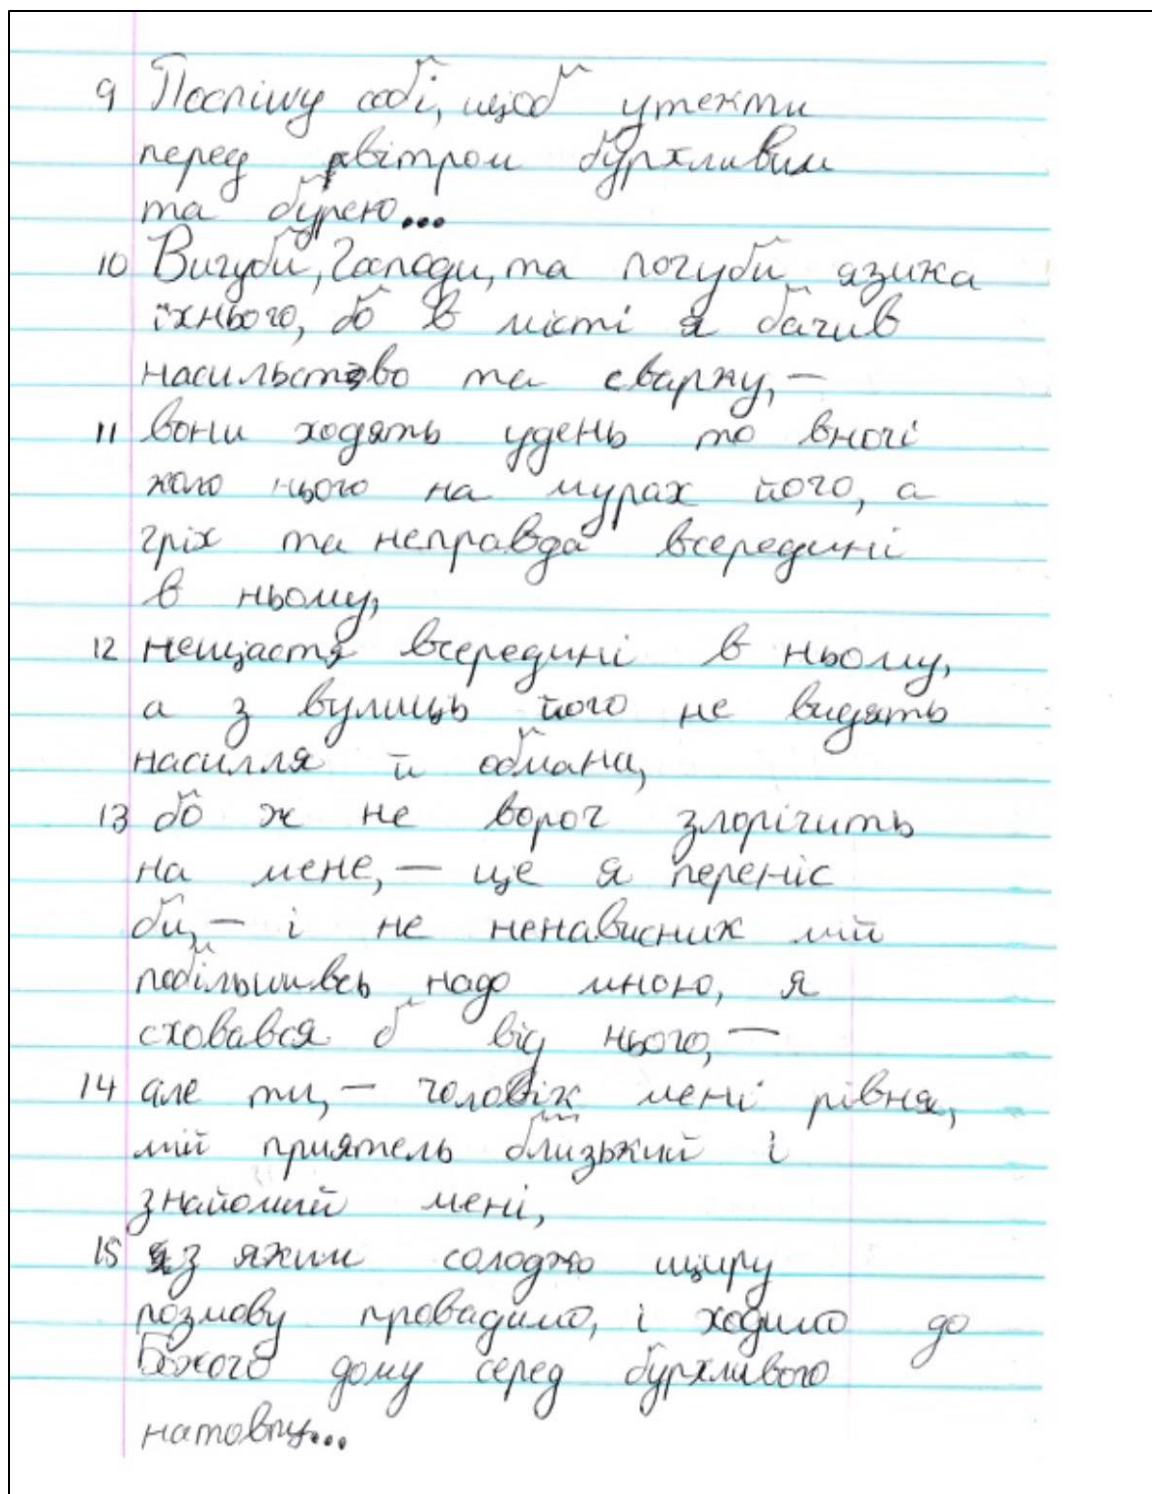 9 Поспішу собі, щоб утекти
перед вітром бурхливим
та бурею...
10 Вигуби, Господи, та погуби язика
їхнього, бо в місті я бачив
насильство та сварку, –
11 вони ходять удень то вночі
коло нього на мурах його, а
гріх та неправда всередині
в ньому,
12 нещастя всередині в ньому,
а з вулиць його не видять
насилля й обмана,
13 бо ж не ворог злорічить
на мене, – ще я переніс
би, – і не ненависник мій
побільшивсь надо мною, я
сховався б від нього, –
14 але ти, – чоловік мені рівня,
мій приятель близький і
знайомий мені,
15 з яким солодко щиру
розмову провадимо, і ходимо до
Божого дому серед бурхливого
натовпу...